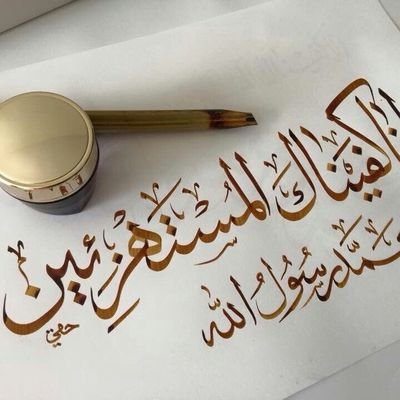 كفيناك المُستهزئين
محمَّد رسُولُ الله